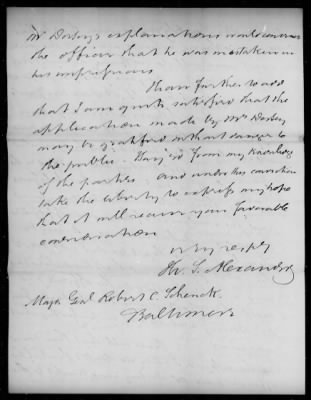 Mr Darby's explanations would convince
the officer that he was mistaken in
his impressions
I have further to add
that I am quite satisfied that the
application made by Mrs Darby
may be gratified without danger to
the public. I say so from my knowledge
of the parties and under this conviction
take the liberty to express my hope
that it will receive your favorable
consideration
Very respy
Th. S. Alexander
Major Genl Robert C Schenck
Baltimore